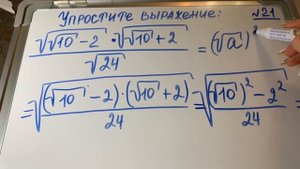 Упростите выражение: №21
(√(√10 − 2) · √(√10 + 2)) / √24 = (√a)²
= √(((√10 − 2) · (√10 + 2)) / 24) = √(((√10)² − 2²) / 24)